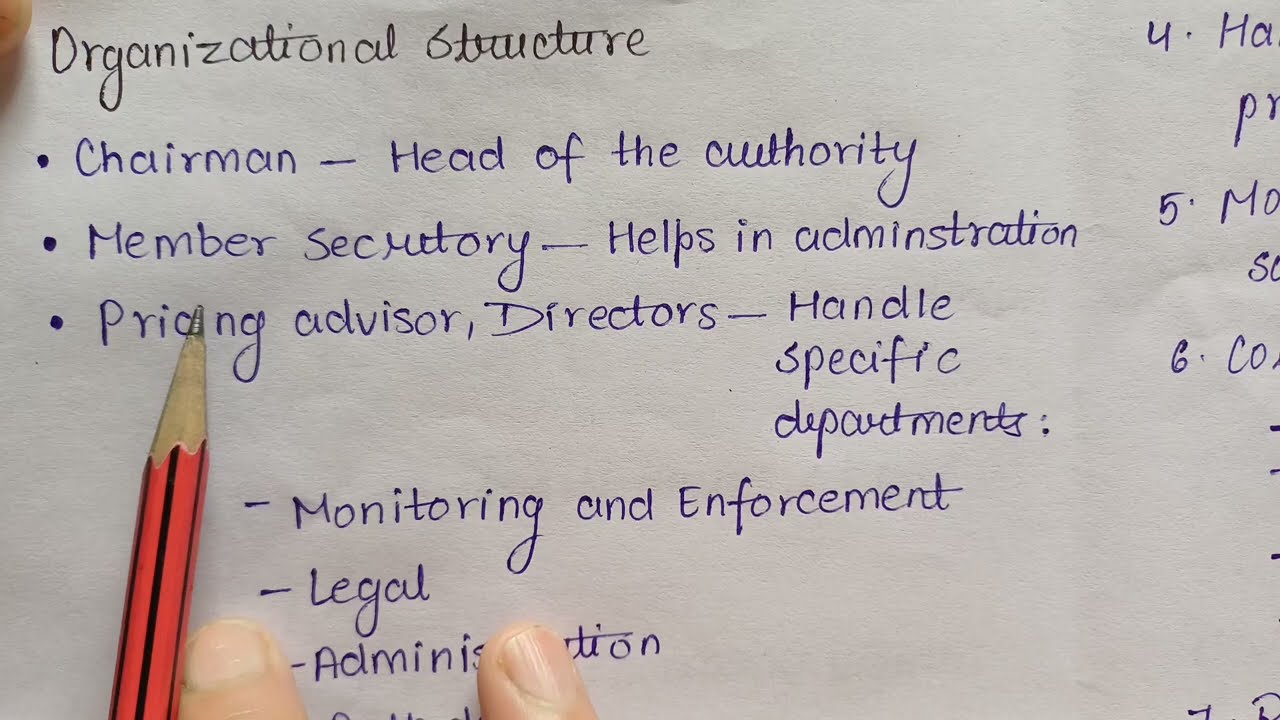 Organizational Structure
• Chairman – Head of the authority
• Member secrutory – Helps in adminstration
• Pricing advisor, Directors – Handle
specific
departments:
- Monitoring and Enforcement
- Legal
4.
5.
6.
7.